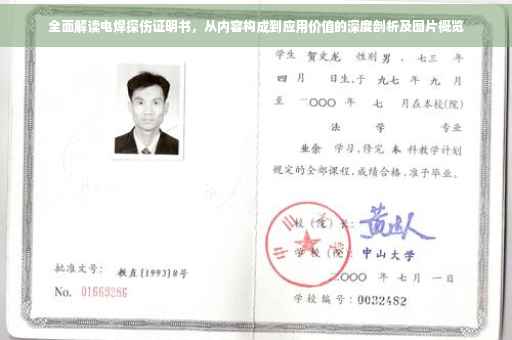 全面解读电焊探伤证明书，从内容构成到应用价值的深度剖析及图片概览
学生 贺文龙 性别 男 、七三 年
四 月 日生,于 九七 年 九 月
至 二〇〇〇 年 七 月在本校(院)
法 学 专业
业余 学习,修完 本 科教学计划
规定的全部课程,成绩合格,准予毕业。
校 (院) 长:
学 校 (院): 中山大学
二〇〇〇 年 七 月 一 日
学校编号: 0032482
批准文号: 教直[1993]8号
No. 01669286